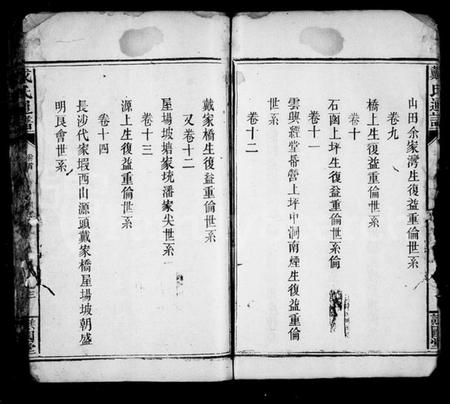 戴氏通譜
山田余家灣生復益重倫世系
卷九
橋上生復益重倫世系
卷十
石崗上坪生復益重倫世系倫
卷十一
雲興經堂
上坪中洞南煙生復益重倫
世系
卷十二
戴家橋生復益重倫世系
又卷十二
屋場坡塘家垅潘家尖世系
卷十三
源上生復益重倫世系
卷十四
長沙代家塅西山源頭戴家橋屋場坡朝盛
明良會世系
戴氏通譜
卷首